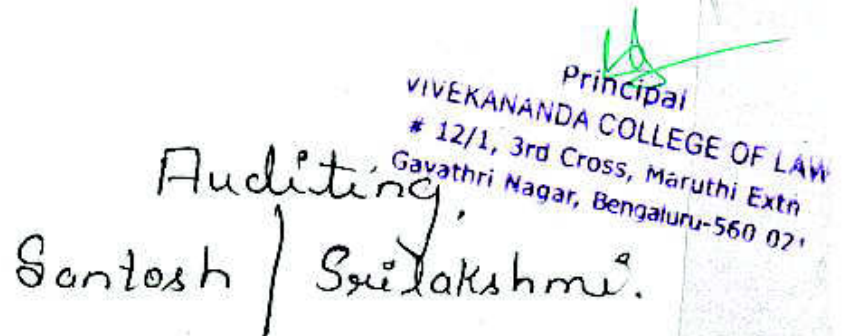 Principal
VIVEKANANDA COLLEGE OF LAW
# 12/1, 3rd Cross, Maruthi Extn
Gayathri Nagar, Bengaluru-560 021
Auditing,
Santosh / Srilakshmi.